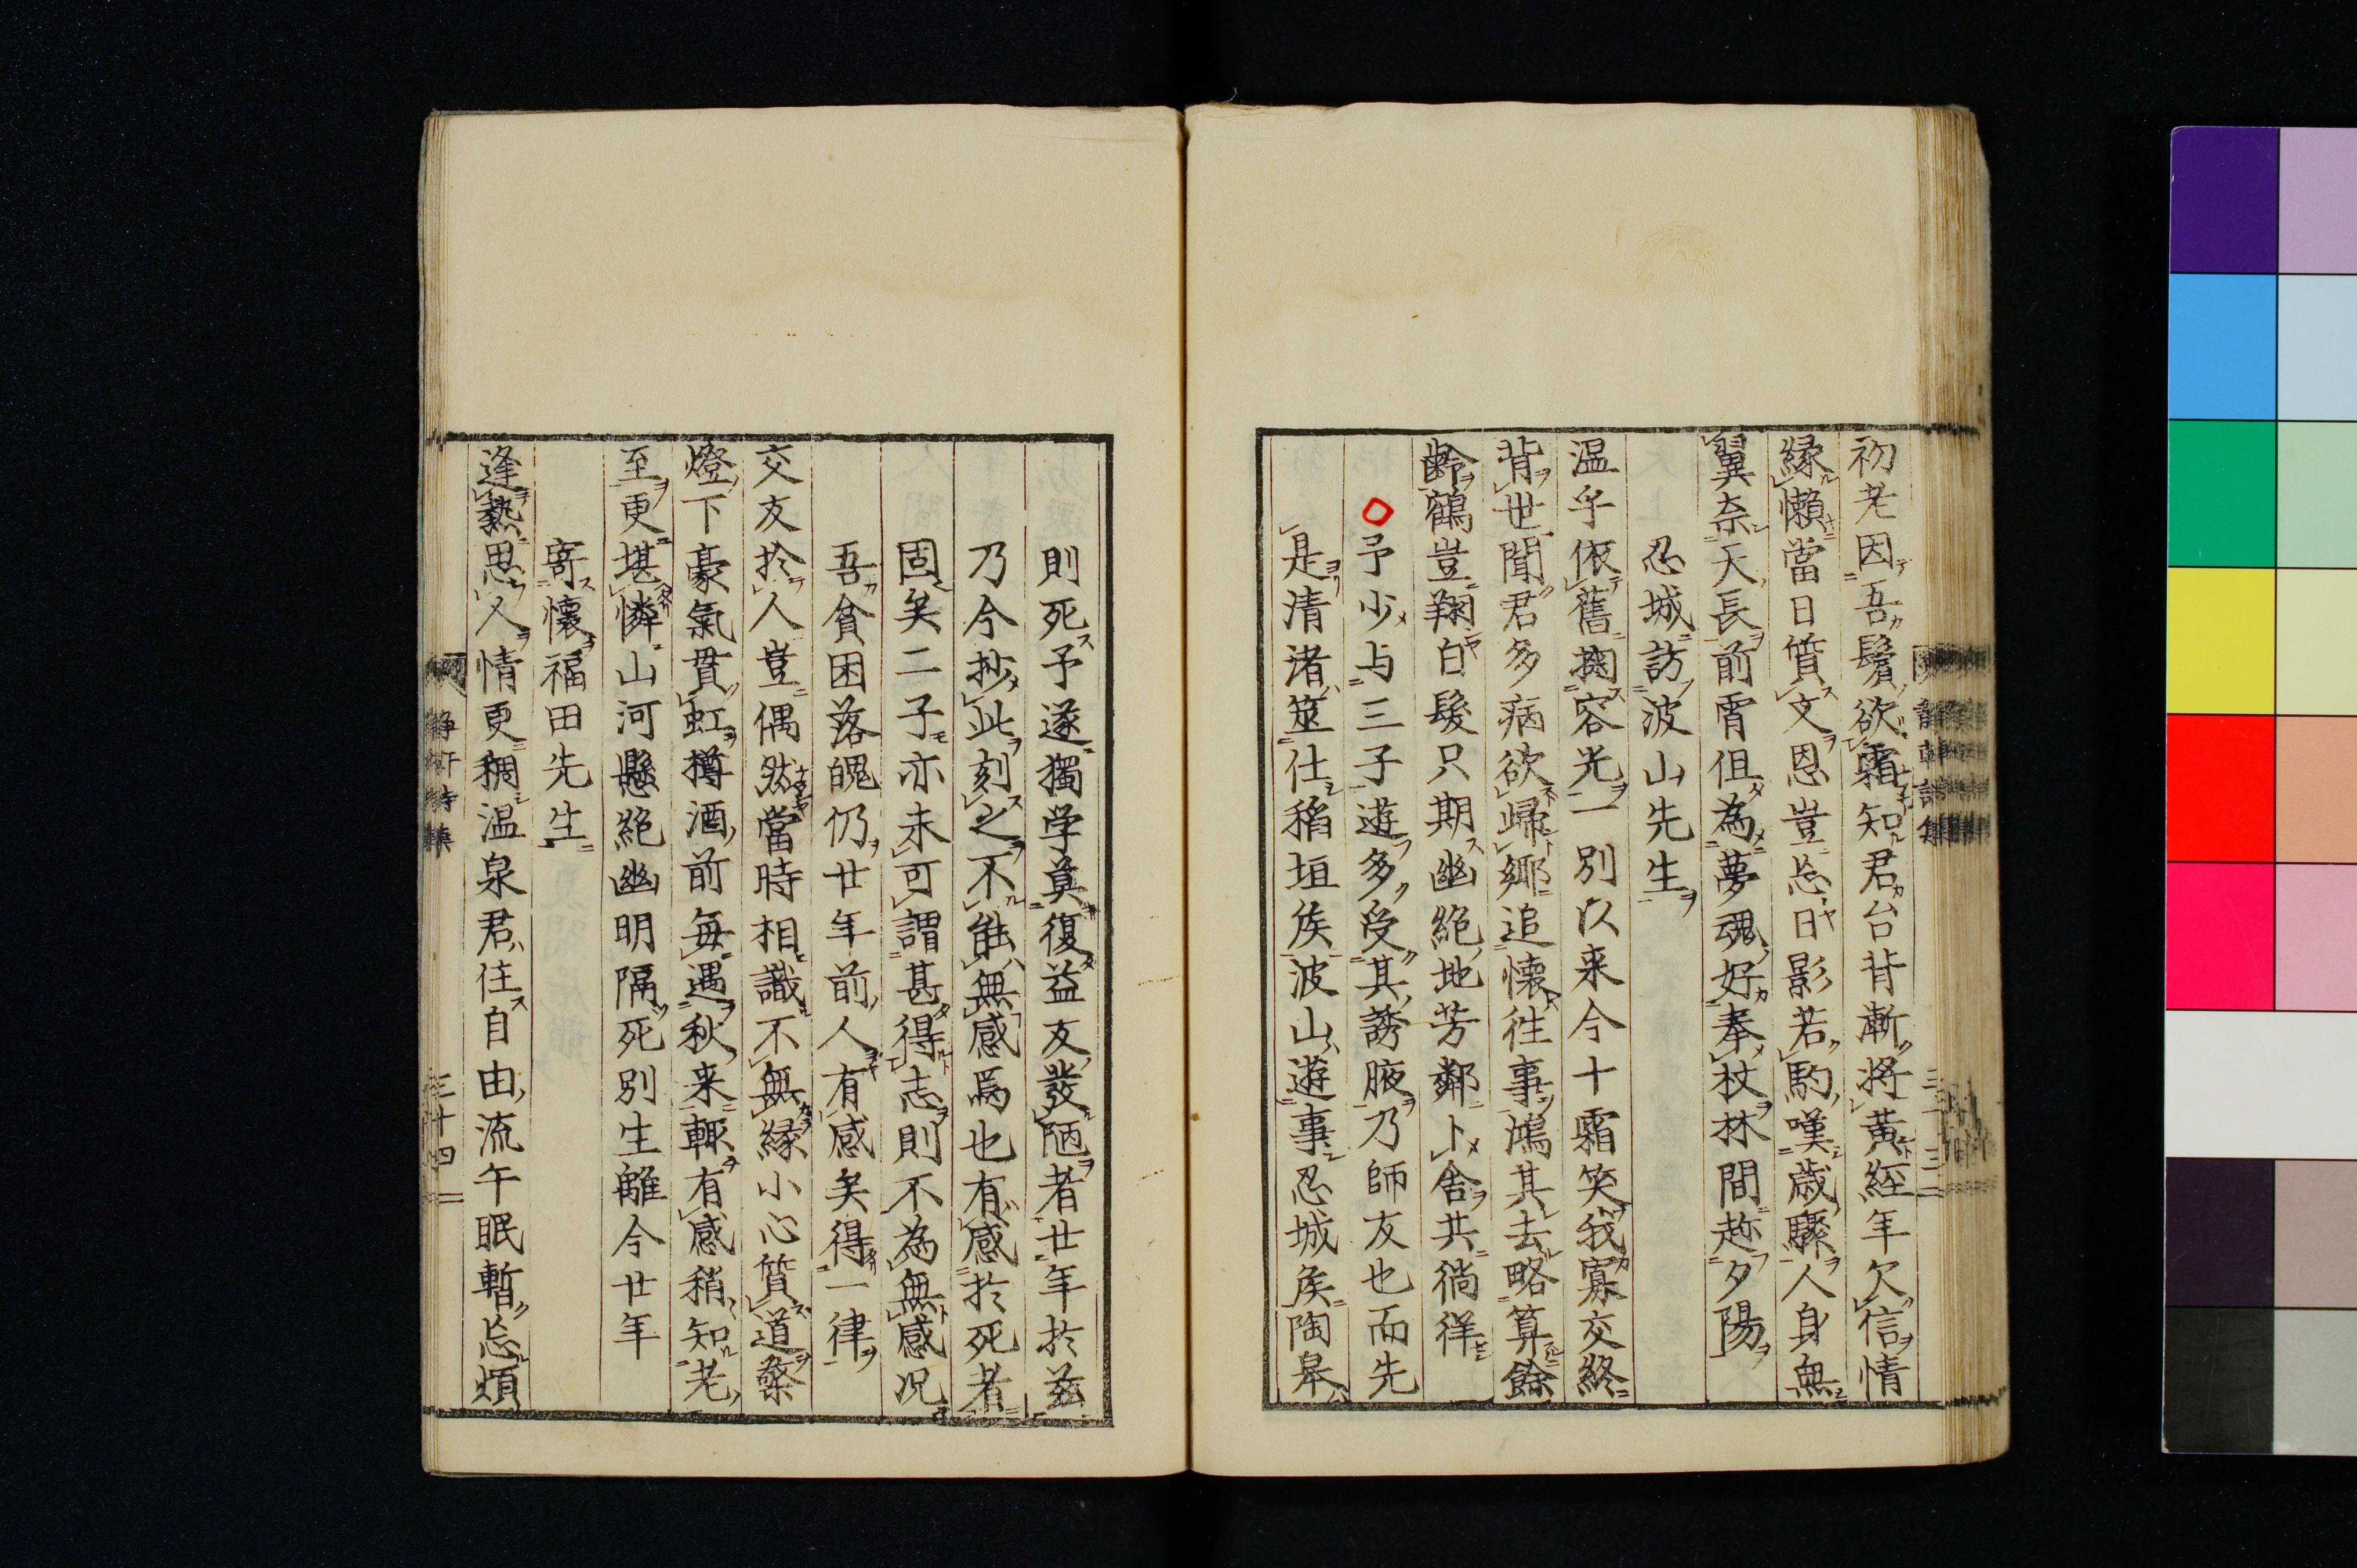 初老因吾鬢欲霜知君台背漸將黃経年欠信情
縁懶當日質文恩豈忘日影若駒嘆歳驟人身無
翼奈天長前宵但為夢魂好奉杖林間趂夕陽
忍城訪波山先生
温乎依舊掬容光一別以来今十霜笑我寡交終
背世聞君多病欲歸郷追懐徃事鴻其去略算餘
齢鶴豈翔白髮只期幽絶地芳鄰卜舎共徜徉
予少与三子遊多受其誘腋乃師友也而先
是清渚筮仕稲垣矦波山遊事忍城矦陶皐
則死予遂獨学莫復益友發陋者廿年於茲
乃今抄此刻之不能無感焉也有感於死者
固矣二子亦未可謂甚得志則不為無感况
吾貧困落魄仍廿年前人有感矣得一律
交友於人豈偶然當時相識不無縁小心質道檠
燈下豪氣貫虹樽酒前毎遇秋来輙有感稍知老
至更堪憐山河懸絶幽明隔死別生離今廿年
寄懐福田先生
逢熱思人情更稠温泉君住自由流午眠暫忘煩
三十四